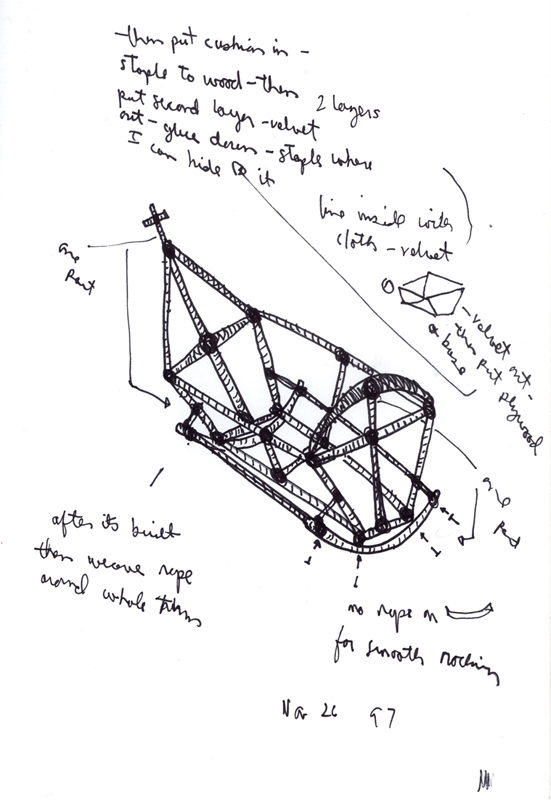 then put cushion in -
staple to wood - then
2 layers
put second layer - velvet
out - glue down - staple where
I can hide it
line inside with
cloth - velvet
one
part
- velvet out -
then put plywood
a base
one
part
after its built
then weave rope
around whole thing
no rope on
for smooth rocking
Nov 26 97